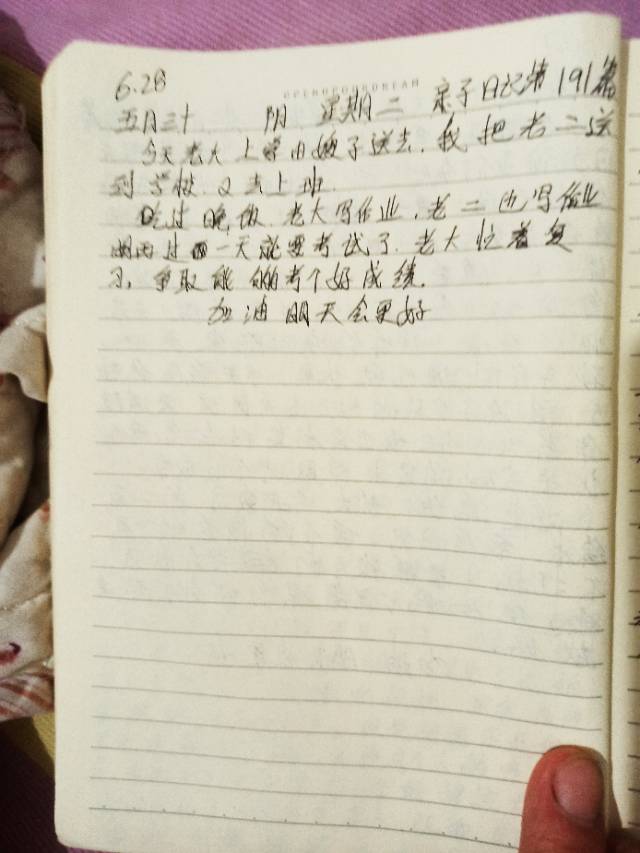 6.28
五月三十 阴 星期二 亲子日记第191篇
今天老大上学由嫂子送去,我把老二送
到学校又去上班.
吃过晚饭.老大写作业,老二也写作业
再过一天就要考试了.老大忙着复
习,争取能考个好成绩.
加油明天会更好